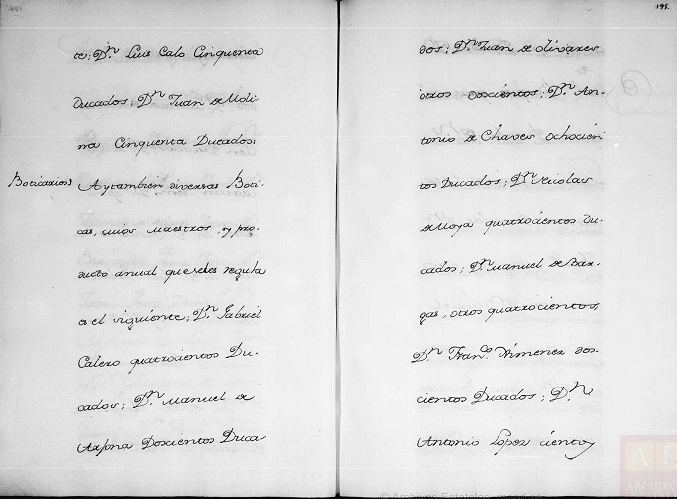 te; D.n Luis Calo Cinquenta
Ducados; D.n Juan de Moli-
na Cinquenta Ducados:
Boticarios} Ay tambien diversas Boti-
cas, cuios Maestros, y pro-
ducto anual que se les regula
es el siguiente; D.n Gabriel
Calero quatrocientos Du-
cados; D.n Manuel de
Doscientos Duca
195.
dos; D.n Juan de Olivares
otros doscientos; D.n An-
tonio de Chaves ochocien
tos Ducados; D.n Nicolas
de Moya quatrocientos du-
cados; D.n Manuel de Bar-
gas, otros quatrocientos,
D.n Fran.co Ximenez dos-
cientos Ducados; D.n
Antonio Lopez ciento y